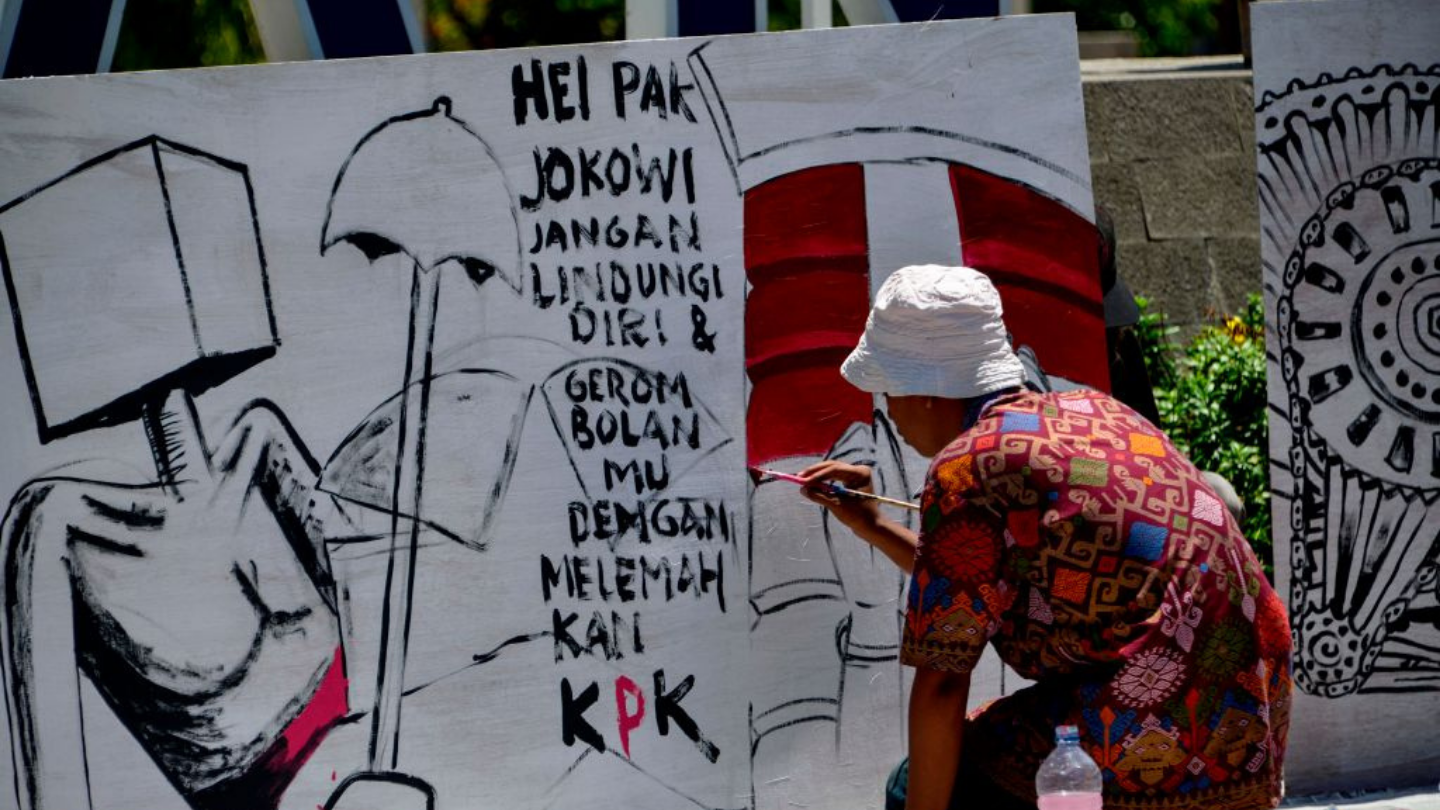 HEI PAK
JOKOWI
JANGAN
LINDUNGI
DIRI &
GEROM
BOLAN
MU
DEMGAN
MELEMAH
KAN
KPK